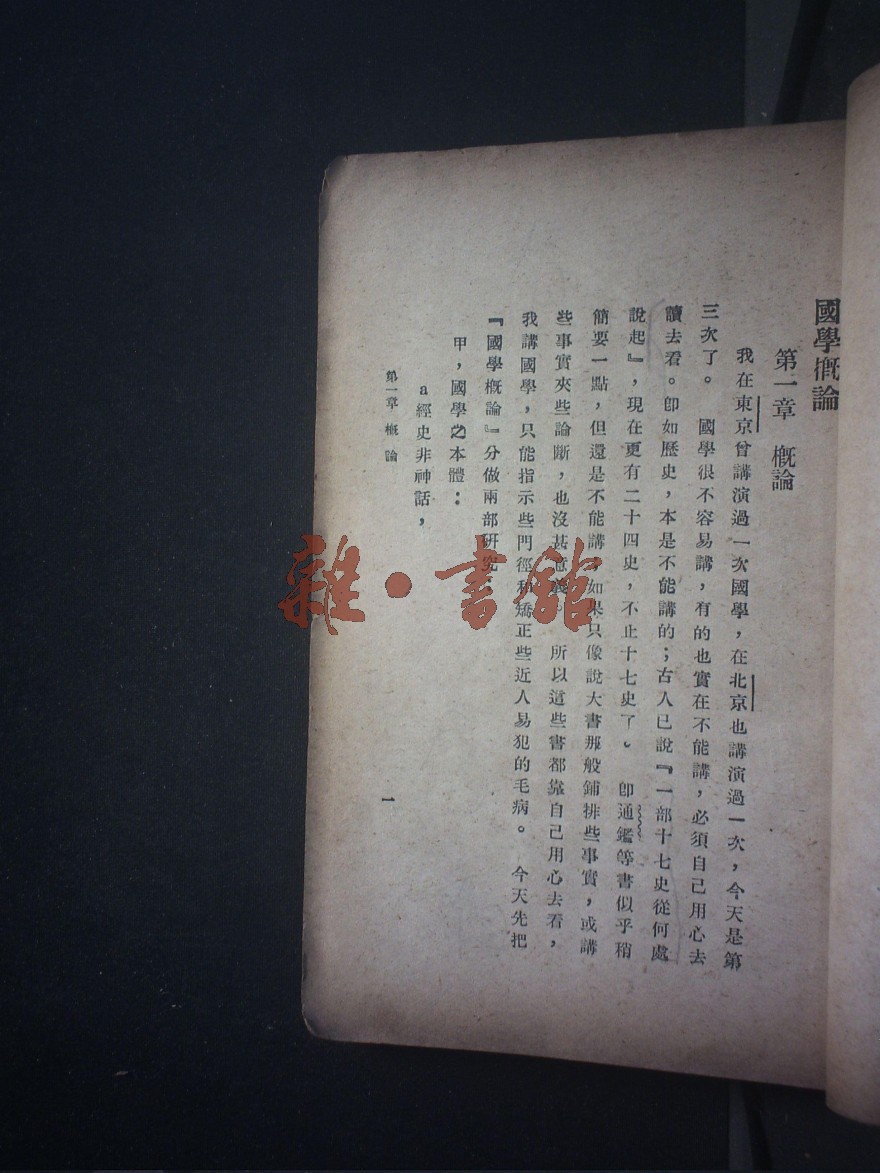 國學概論
第一章 概論
我在東京曾講演過一次國學，在北京也講演過一次，今天是第
三次了。 國學很不容易講，有的也實在不能講，必須自己用心去
讀去看。卽如歷史，本是不能講的；古人已說『一部十七史從何處
說起』，現在更有二十四史，不止十七史了。 卽通鑑等書似乎稍
簡要一點，但還是不能講，如果只像說大書那般鋪排些事實，或講
些事實夾些論斷，也沒甚意義。 所以這些書都靠自己用心去看，
我講國學，只能指示些門徑和矯正些近人易犯的毛病。 今天先把
『國學概論』分做兩部研究
甲，國學之本體：
a經史非神話，
第一章 概論
一
雜・書館